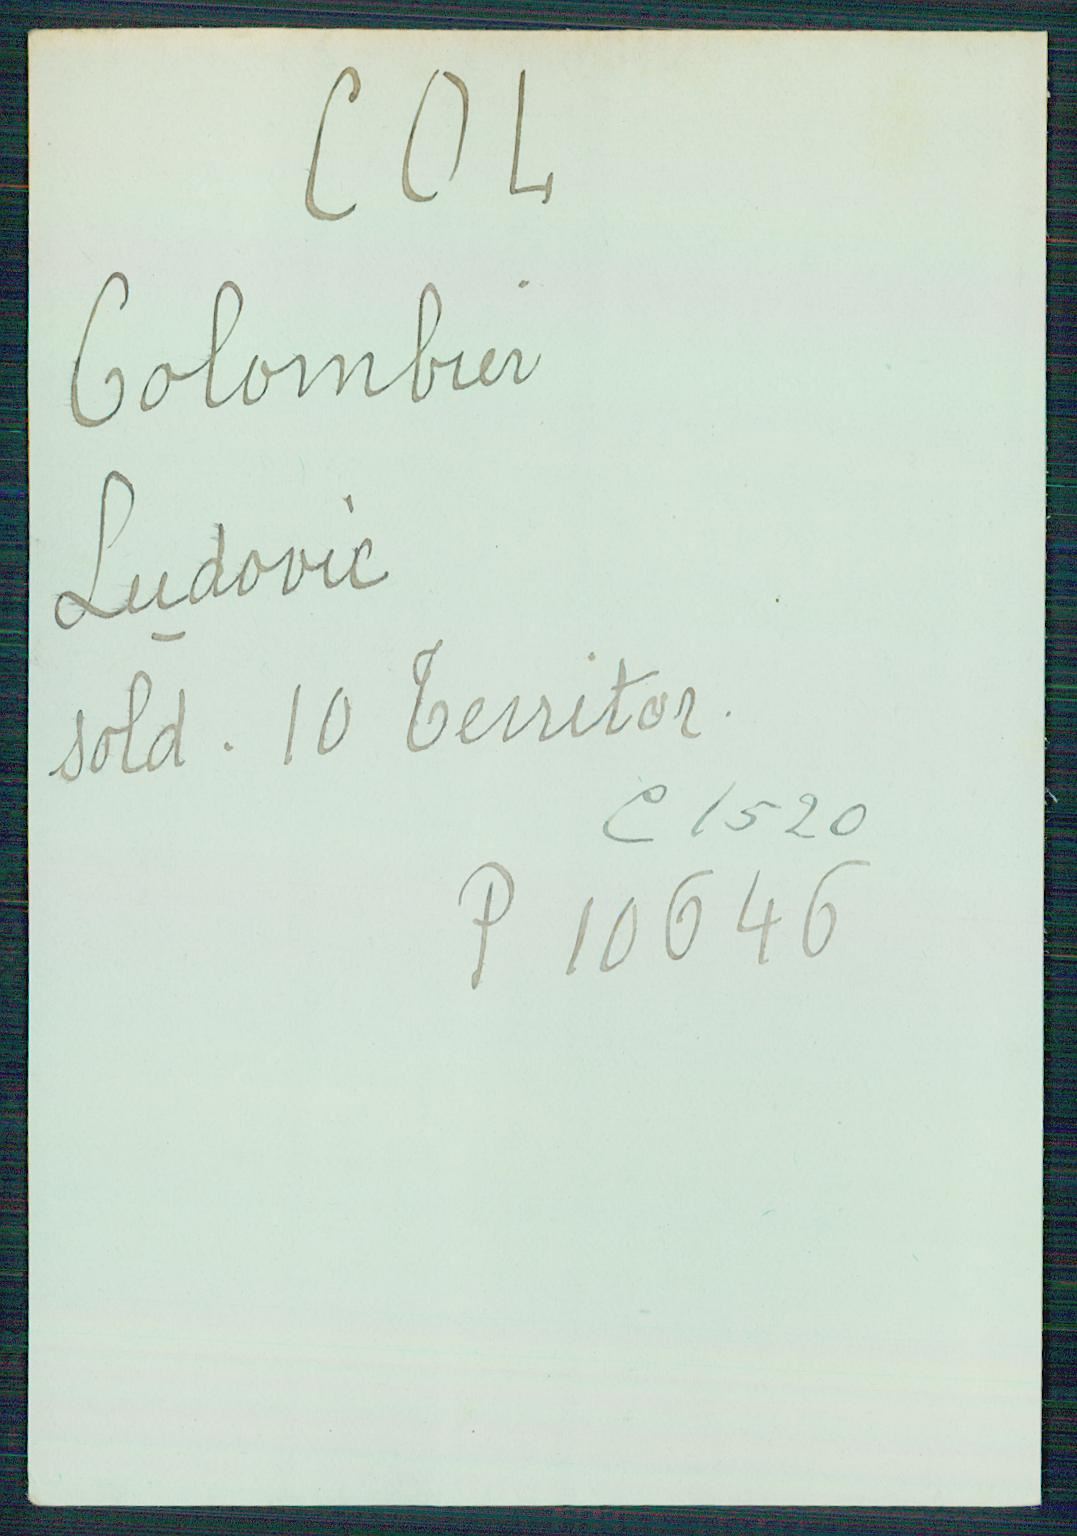 COL
Colombier
Ludovic
sold. 10 Territor.
C 1520
P 10646